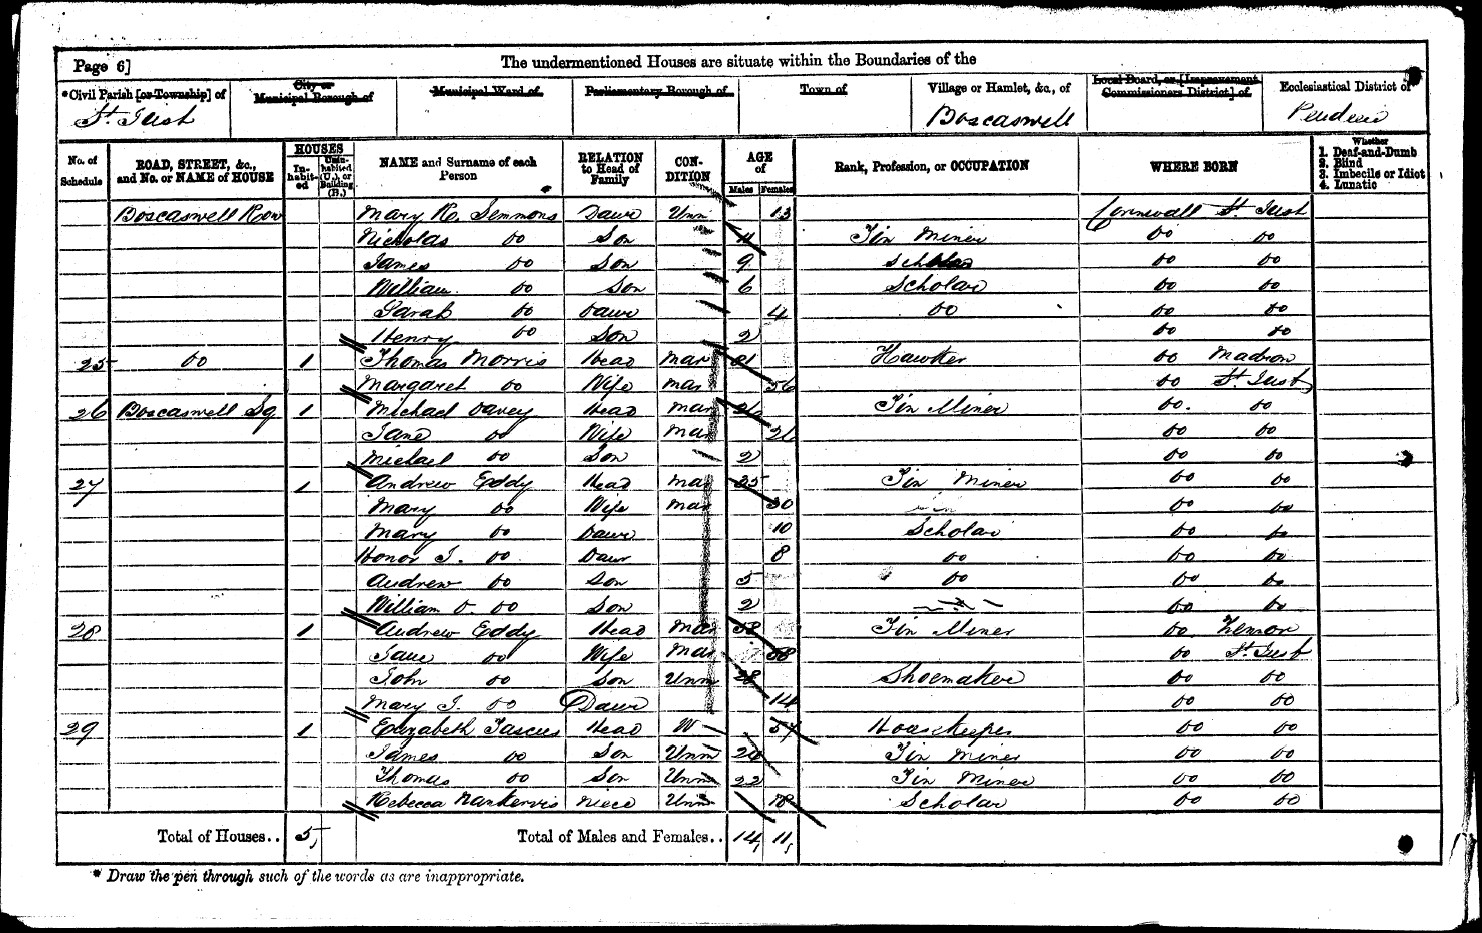 Page 6]
The undermentioned Houses are situate within the Boundaries of the
*Civil Parish [or Township] of
St. Just
City or Municipal Borough of
Municipal Ward of
Parliamentary Borough of
Town of
Village or Hamlet, &c., of
Boscaswell
Local Board, or [Improvement Commissioners District] of
Ecclesiastical District of
Pendeen
No. of Schedule
ROAD, STREET, &c., and No. or NAME of HOUSE
HOUSES
Inhabited
Uninhabited (U.), or Building (B.)
NAME and Surname of each Person
RELATION to Head of Family
CONDITION
AGE of
Males Females
Rank, Profession, or OCCUPATION
WHERE BORN
Whether
1. Deaf-and-Dumb
2. Blind
3. Imbecile or Idiot
4. Lunatic
Boscaswell Row Mary Semmons Daur Unm 13 Cornwall St. Just
Nicholas Do Son 11 Tin Miner Do Do
James Do Son 9 Scholar Do Do
William Do Son 6 Scholar Do Do
Sarah Do Daur 4 Do Do Do
Henry Do Son 2 Do Do
25 Do 1 Thomas Morris Head Mar Hawker Do Madron
Margaret Do Wife Mar 56 Do St. Just
26 Boscaswell Sq 1 Michael Davey Head Mar Tin Miner Do Do
Jane Do Wife Mar 21 Do Do
Michael Do Son 2 Do Do
27 1 Andrew Eddy Head Mar 35 Tin Miner Do Do
Mary Do Wife Mar 30 Do Do
Mary Do Daur 10 Scholar Do Do
Honor J. Do Daur 8 Do Do Do
Andrew Do Son 5 Do Do Do
William O. Do Son 2 Do Do
28 1 Andrew Eddy Head Mar 58 Tin Miner Do Zennor
Jane Do Wife Mar 58 Do St. Just
John Do Son Unm 28 Shoemaker Do Do
Mary J. Do Daur 14 Do Do
29 1 Elizabeth Head W 57 Housekeeper Do Do
James Do Son Unm 24 Tin Miner Do Do
Thomas Do Son Unm 22 Tin Miner Do Do
Rebecca Nankervis Niece Unm Scholar Do Do
Total of Houses.. 5
Total of Males and Females.. 14 11
* Draw the pen through such of the words as are inappropriate.